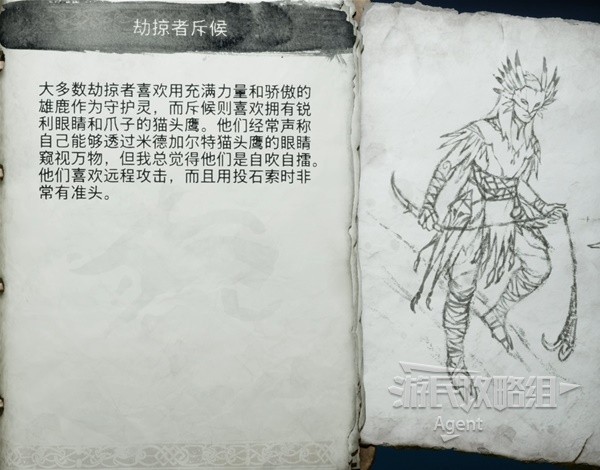 劫掠者斥候
大多数劫掠者喜欢用充满力量和骄傲的
雄鹿作为守护灵，而斥候则喜欢拥有锐
利眼睛和爪子的猫头鹰。他们经常声称
自己能够透过米德加尔特猫头鹰的眼睛
窥视万物，但我总觉得他们是自吹自擂。
他们喜欢远程攻击，而且用投石索时非
常有准头。
游民攻略组
Agent